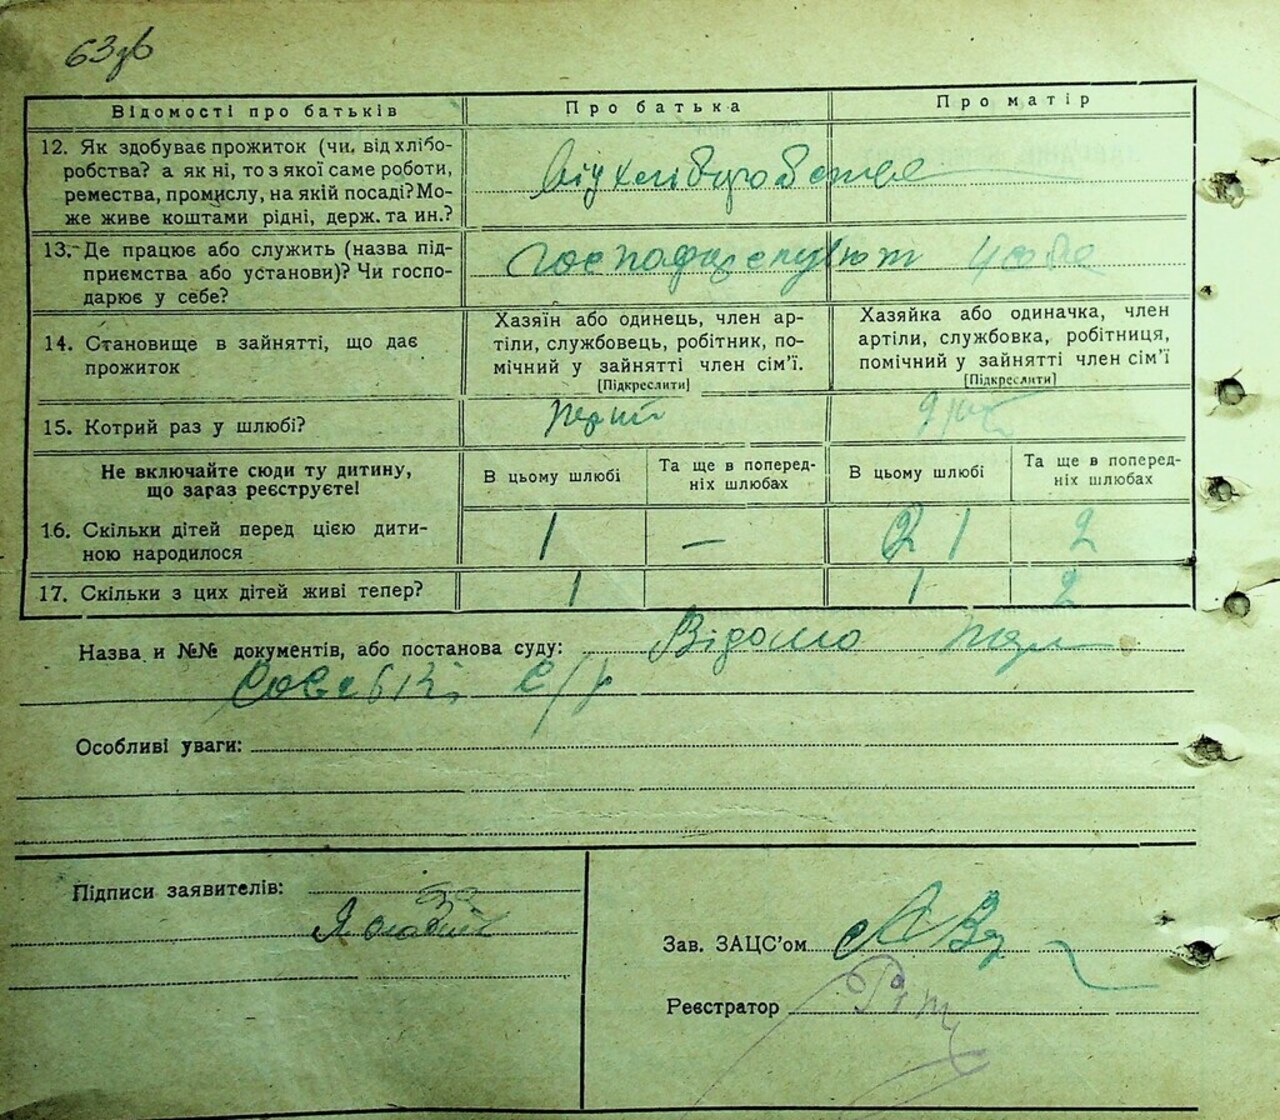 63зв
Відомості про батьків
Про батька
Про матір
12. Як здобуває прожиток (чи, від хлібо-
робства? а як ні, то з якої саме роботи,
ремества, промислу, на якій посаді? Мо-
же живе коштами рідні, держ. та ин.?
від хліборобства
13. Де працює або служить (назва під-
приємства або установи)? Чи госпо-
дарює у себе?
у себе
14. Становище в зайнятті, що дає
прожиток
Хазяїн або одинець, член ар-
тіли, службовець, робітник, по-
мічний у зайнятті член сім'ї.
[Підкреслити]
Хазяйка або одиначка, член
артіли, службовка, робітниця,
помічний у зайнятті член сім'ї
[Підкреслити]
15. Котрий раз у шлюбі?
Не включайте сюди ту дитину,
що зараз реєструєте!
В цьому шлюбі
Та ще в поперед-
ніх шлюбах
В цьому шлюбі
Та ще в поперед-
ніх шлюбах
16. Скільки дітей перед цією дити-
ною народилося
1 — 2 1 2
17. Скільки з цих дітей живі тепер?
1 1 2
Назва и №№ документів, або постанова суду: Відомо
с/р
Особливі уваги:
Підписи заявителів:
Зав. ЗАЦС'ом
Реєстратор